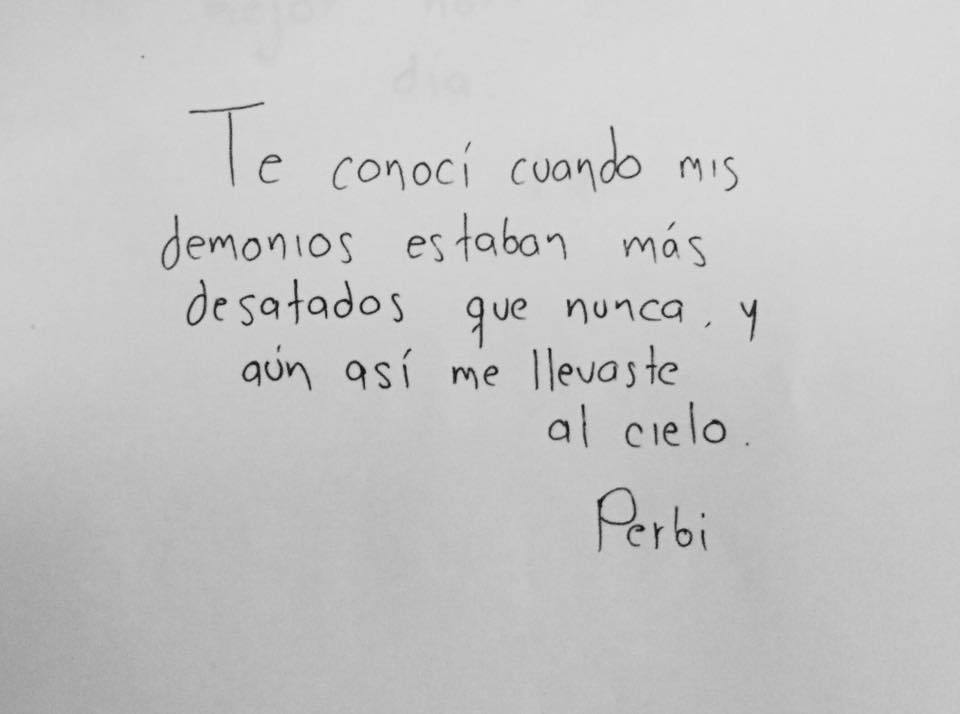 Te conocí cuando mis
demonios estaban más
desatados que nunca, y
aún así me llevaste
al cielo.
Perbi